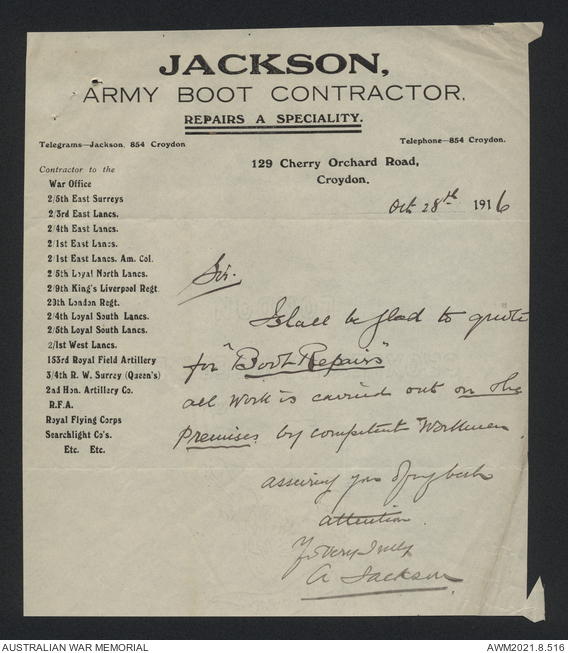 JACKSON,
ARMY BOOT CONTRACTOR.
REPAIRS A SPECIALITY.
Telegrams—Jackson, 854 Croydon
Telephone—854 Croydon.
129 Cherry Orchard Road,
Croydon.
Oct. 28th 1916
Contractor to the
War Office
2/5th East Surreys
2/3rd East Lancs.
2/4th East Lancs.
2/1st East Lancs.
2/1st East Lancs. Am. Col.
2/5th Loyal North Lancs.
2/9th King's Liverpool Regt.
29th London Regt.
2/4th Loyal South Lancs.
2/5th Loyal South Lancs.
2/1st West Lancs.
153rd Royal Field Artillery
3/4th R. W. Surrey (Queen's)
2nd Hon. Artillery Co.
R.F.A.
Royal Flying Corps
Searchlight Co's.
Etc. Etc.
Sir.
I shall be glad to quote
for "Boot Repairs"
all work is carried out on the
premises by competent workmen.
assuring you of my best
attention.
Yrs very truly
A Jackson
AUSTRALIAN WAR MEMORIAL
AWM2021.8.516